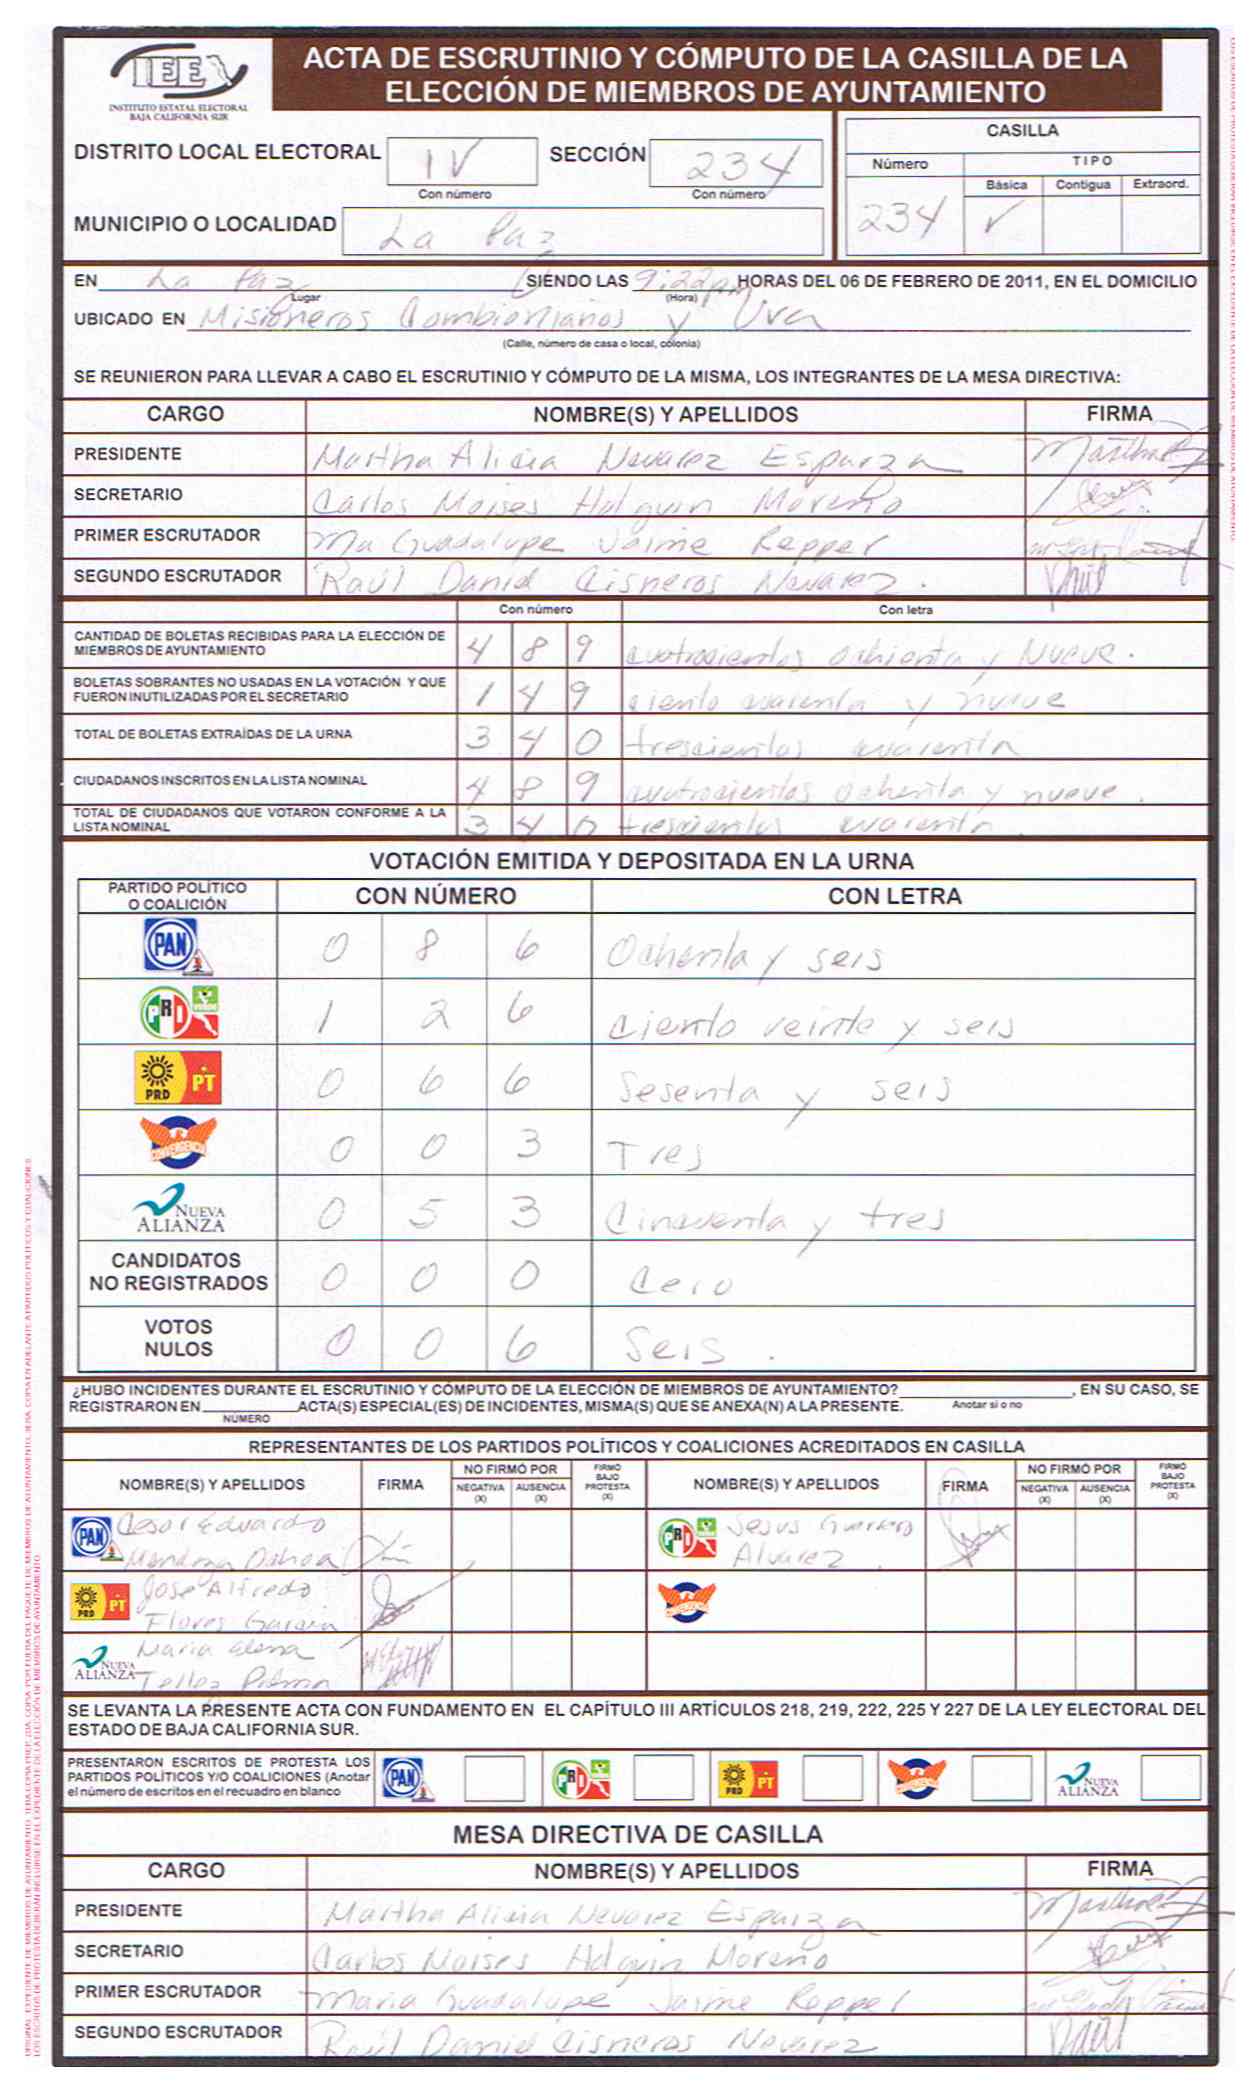 IEE
INSTITUTO ESTATAL ELECTORAL
BAJA CALIFORNIA SUR
ACTA DE ESCRUTINIO Y CÓMPUTO DE LA CASILLA DE LA
ELECCIÓN DE MIEMBROS DE AYUNTAMIENTO
DISTRITO LOCAL ELECTORAL IV SECCIÓN 234
Con número Con número
MUNICIPIO O LOCALIDAD La Paz
CASILLA
Número TIPO
Básica Contigua Extraord.
234 ✓
EN La Paz SIENDO LAS 9:22pm HORAS DEL 06 DE FEBRERO DE 2011, EN EL DOMICILIO
Lugar (Hora)
UBICADO EN Misioneros Combionianos y Uva
(Calle, número de casa o local, colonia)
SE REUNIERON PARA LLEVAR A CABO EL ESCRUTINIO Y CÓMPUTO DE LA MISMA, LOS INTEGRANTES DE LA MESA DIRECTIVA:
CARGO NOMBRE(S) Y APELLIDOS FIRMA
PRESIDENTE Martha Alicia Nevarez Esparza
SECRETARIO Carlos Moises Holguin Moreno
PRIMER ESCRUTADOR Ma Guadalupe Jaime Repper
SEGUNDO ESCRUTADOR Raúl Daniel Cisneros Nevarez.
Con número Con letra
CANTIDAD DE BOLETAS RECIBIDAS PARA LA ELECCIÓN DE
MIEMBROS DE AYUNTAMIENTO 4 8 9 cuatrocientos ochienta y Nueve.
BOLETAS SOBRANTES NO USADAS EN LA VOTACIÓN Y QUE
FUERON INUTILIZADAS POR EL SECRETARIO 1 4 9 ciento cuarenta y nueve
TOTAL DE BOLETAS EXTRAÍDAS DE LA URNA 3 4 0 trescientos cuarenta
CIUDADANOS INSCRITOS EN LA LISTA NOMINAL 4 8 9 cuatrocientos ochenta y nueve.
TOTAL DE CIUDADANOS QUE VOTARON CONFORME A LA
LISTA NOMINAL 3 4 0 trescientos cuarenta.
VOTACIÓN EMITIDA Y DEPOSITADA EN LA URNA
PARTIDO POLÍTICO
O COALICIÓN CON NÚMERO CON LETRA
PAN 0 8 6 Ochenta y seis
PRI VERDE 1 2 6 Ciento veinte y seis
PRD PT 0 6 6 Sesenta y seis
CONVERGENCIA 0 0 3 Tres
NUEVA ALIANZA 0 5 3 Cincuenta y tres
CANDIDATOS
NO REGISTRADOS 0 0 0 Cero
VOTOS
NULOS 0 0 6 Seis.
¿HUBO INCIDENTES DURANTE EL ESCRUTINIO Y CÓMPUTO DE LA ELECCIÓN DE MIEMBROS DE AYUNTAMIENTO? , EN SU CASO, SE
Anotar si o no
REGISTRARON EN ACTA(S) ESPECIAL(ES) DE INCIDENTES, MISMA(S) QUE SE ANEXA(N) A LA PRESENTE.
NÚMERO
REPRESENTANTES DE LOS PARTIDOS POLÍTICOS Y COALICIONES ACREDITADOS EN CASILLA
NOMBRE(S) Y APELLIDOS FIRMA NO FIRMÓ POR NEGATIVA (X) AUSENCIA (X) FIRMÓ BAJO PROTESTA (X) NOMBRE(S) Y APELLIDOS FIRMA NO FIRMÓ POR NEGATIVA (X) AUSENCIA (X) FIRMÓ BAJO PROTESTA (X)
PAN Cesar Eduardo
Mendoza Ochoa
PRI Jesus Guerrero
Alvarez
PRD PT Jose Alfredo
Flores Garcia
CONVERGENCIA
NUEVA ALIANZA Maria Elena
Tellez Palma
SE LEVANTA LA PRESENTE ACTA CON FUNDAMENTO EN EL CAPÍTULO III ARTÍCULOS 218, 219, 222, 225 Y 227 DE LA LEY ELECTORAL DEL
ESTADO DE BAJA CALIFORNIA SUR.
PRESENTARON ESCRITOS DE PROTESTA LOS
PARTIDOS POLÍTICOS Y/O COALICIONES (Anotar
el número de escritos en el recuadro en blanco
PAN PRI PRD PT CONVERGENCIA NUEVA ALIANZA
MESA DIRECTIVA DE CASILLA
CARGO NOMBRE(S) Y APELLIDOS FIRMA
PRESIDENTE Martha Alicia Nevarez Esparza
SECRETARIO Carlos Moises Holguin Moreno
PRIMER ESCRUTADOR Maria Guadalupe Jaime Repper
SEGUNDO ESCRUTADOR Raúl Daniel Cisneros Nevarez